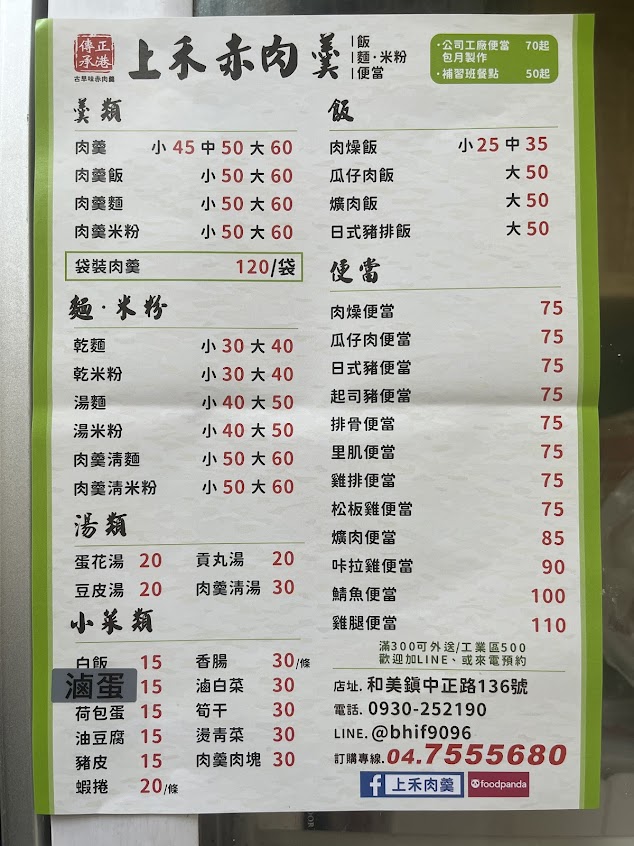 正港
傳承
古早味赤肉羹
上禾赤肉羹
飯
麵·米粉
便當
·公司工廠便當 70起
包月製作
·補習班餐點 50起
羹類
肉羹 小 45 中 50 大 60
肉羹飯 小 50 大 60
肉羹麵 小 50 大 60
肉羹米粉 小 50 大 60
袋裝肉羹 120/袋
麵·米粉
乾麵 小 30 大 40
乾米粉 小 30 大 40
湯麵 小 40 大 50
湯米粉 小 40 大 50
肉羹清麵 小 50 大 60
肉羹清米粉 小 50 大 60
湯類
蛋花湯 20 貢丸湯 20
豆皮湯 20 肉羹清湯 30
小菜類
白飯 15 香腸 30/條
滷蛋 15 滷白菜 30
荷包蛋 15 筍干 30
油豆腐 15 燙青菜 30
豬皮 15 肉羹肉塊 30
蝦捲 20/條
飯
肉燥飯 小 25 中 35
瓜仔肉飯 大 50
爌肉飯 大 50
日式豬排飯 大 50
便當
肉燥便當 75
瓜仔肉便當 75
日式豬便當 75
起司豬便當 75
排骨便當 75
里肌便當 75
雞排便當 75
松板雞便當 75
爌肉便當 85
咔拉雞便當 90
鯖魚便當 100
雞腿便當 110
滿300可外送/工業區500
歡迎加LINE、或來電預約
店址. 和美鎮中正路136號
電話. 0930-252190
LINE. @bhif9096
訂購專線. 04.7555680
f 上禾肉羹 foodpanda